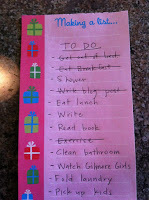 Making a list...
TO DO
- Get out of bed
- Eat Breakfast
- Shower
- Write blog post
- Eat lunch
- Write
- Read book
- Exercise
- Clean bathroom
- Watch Gilmore Girls
- Fold laundry
- Pick up kids